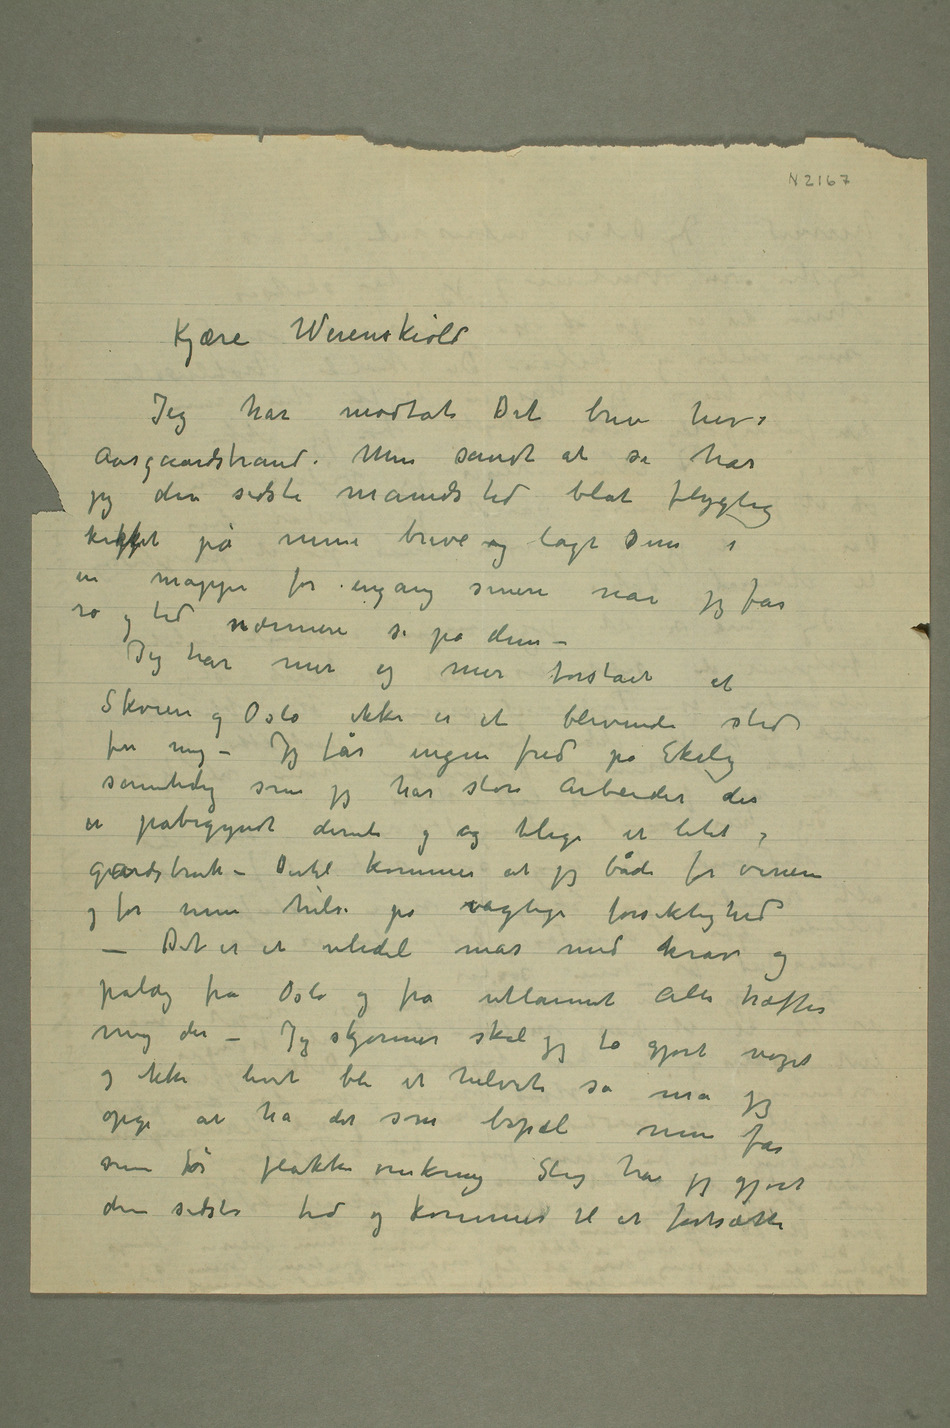 N 2167
Kjære Werenskiold
Jeg har modtat Dit brev her i
Aasgaardstrand. Men sandt at si har
jeg den sidste maaneds tid blot flygtig
kikket på mine breve og lagt dem i
en mappe for engang senere naar jeg får
ro og tid nærmere se på dem –
Jeg har mer og mer forstået at
Skøien og Oslo ikke er et blivende sted
for mig – Jeg får ingen fred på Ekely
samtidig som jeg har store Arbeider der
er påbegyndt derute og og tillige et litet
gårdsbruk – Dertil kommer at jeg både for øinene
og for min helse må vagtige forsiktighed
– Det er et mas med krav og
pålæg fra Oslo og fra utlannet Alle træffer
mig der – Jeg skjønner skal jeg få gjort noget
og ikke livet bli et helvete så må jeg
opgi at ha det som bopæl men får
som før flakke omkring Slig har jeg gjort
den sidste tid og kommer til at fortsætte